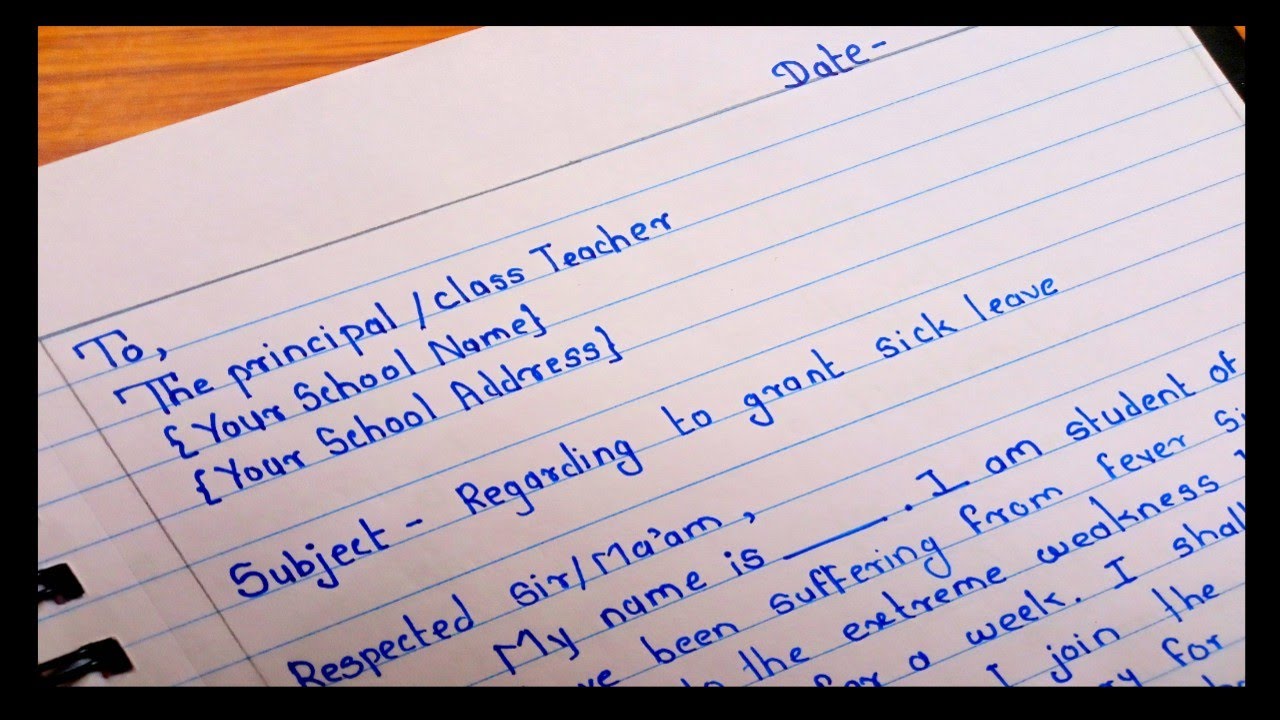 Date-
To,
The principal / class Teacher
{Your School Name}
{Your School Address}
Subject - Regarding to grant sick leave
Respected sir/Ma'am,
My name is ______. I am student of
been suffering from fever
the extreme weakness
for a week. I shall
I join the
for